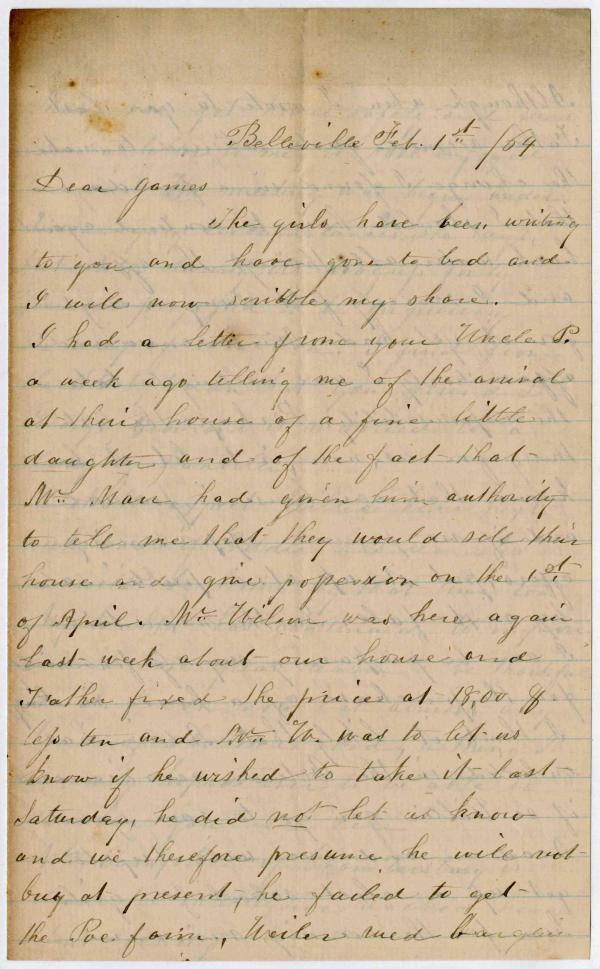 Belleville Feb. 1st /64
Dear James
The girls have been writing
to you and have gone to bed and
I will now scribble my share.
I had a letter from your Uncle P.
a week ago telling me of the arrival
at their house of a fine little
daughter and of the fact that
Mr. Man had given him authority
to tell me that they would sell their
house and give possession on the 1st
of April. Mr Wilson was here again
last week about our house and
Father fixed the price at 18,00 $
less ten and Mr. W. was to let us
know if he wished to take it last
Saturday, he did not let us know
and we therefore presume he will not
buy at present, he failed to get
the Poe farm, bargain